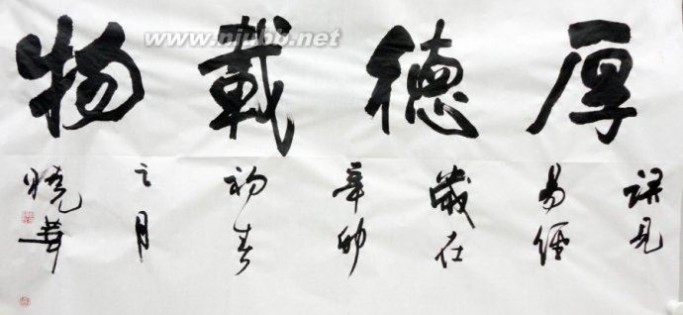 厚德載物
語見
易經
歲在
辛卯
初春
之月
曉華
www.njubb.net